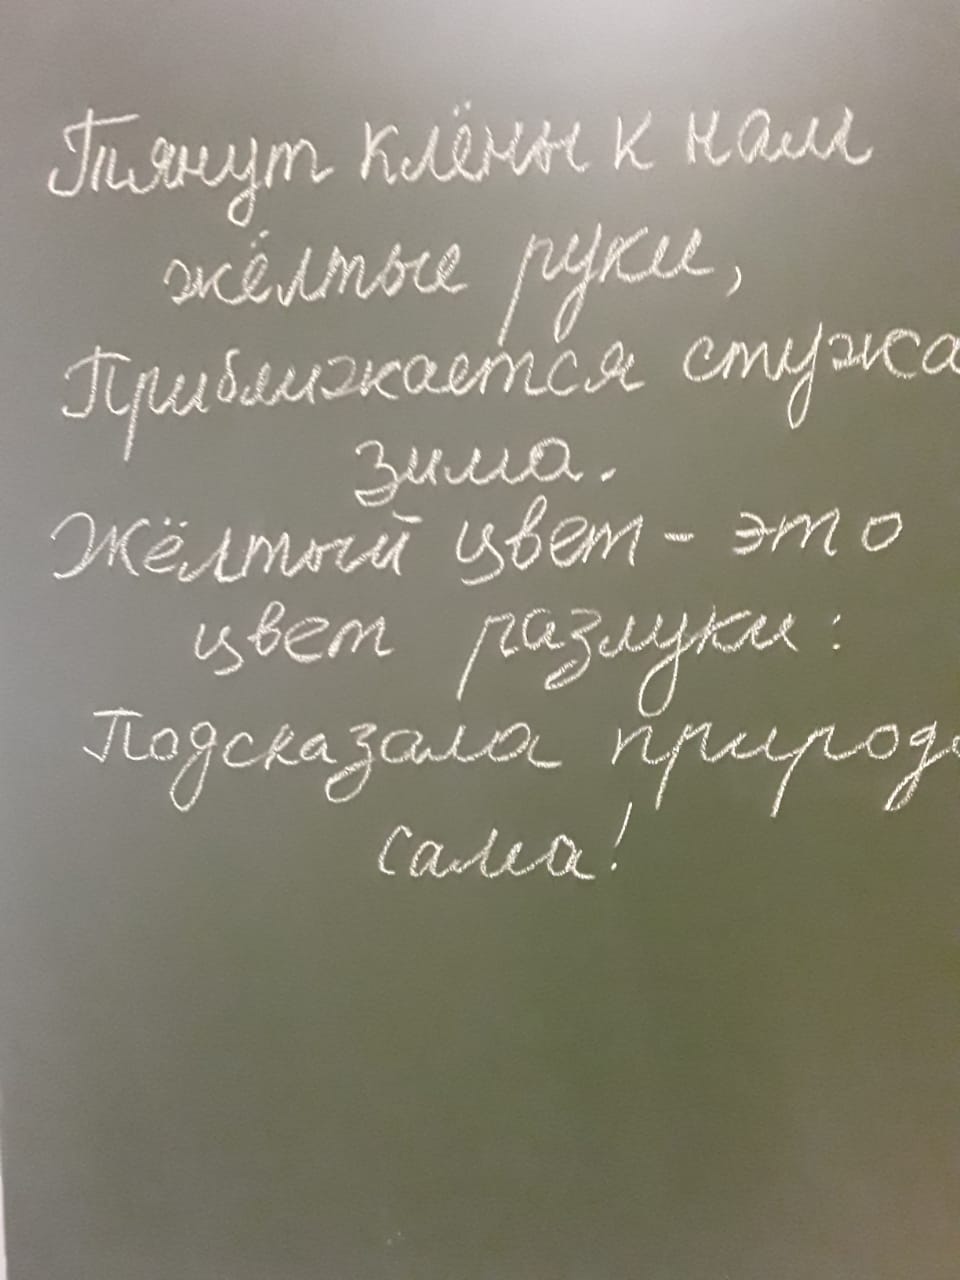 Тянут клёны к нам
жёлтые руки,
Приближается стужа
зима.
Жёлтый цвет - это
цвет разлуки:
Подсказала природа
сама!